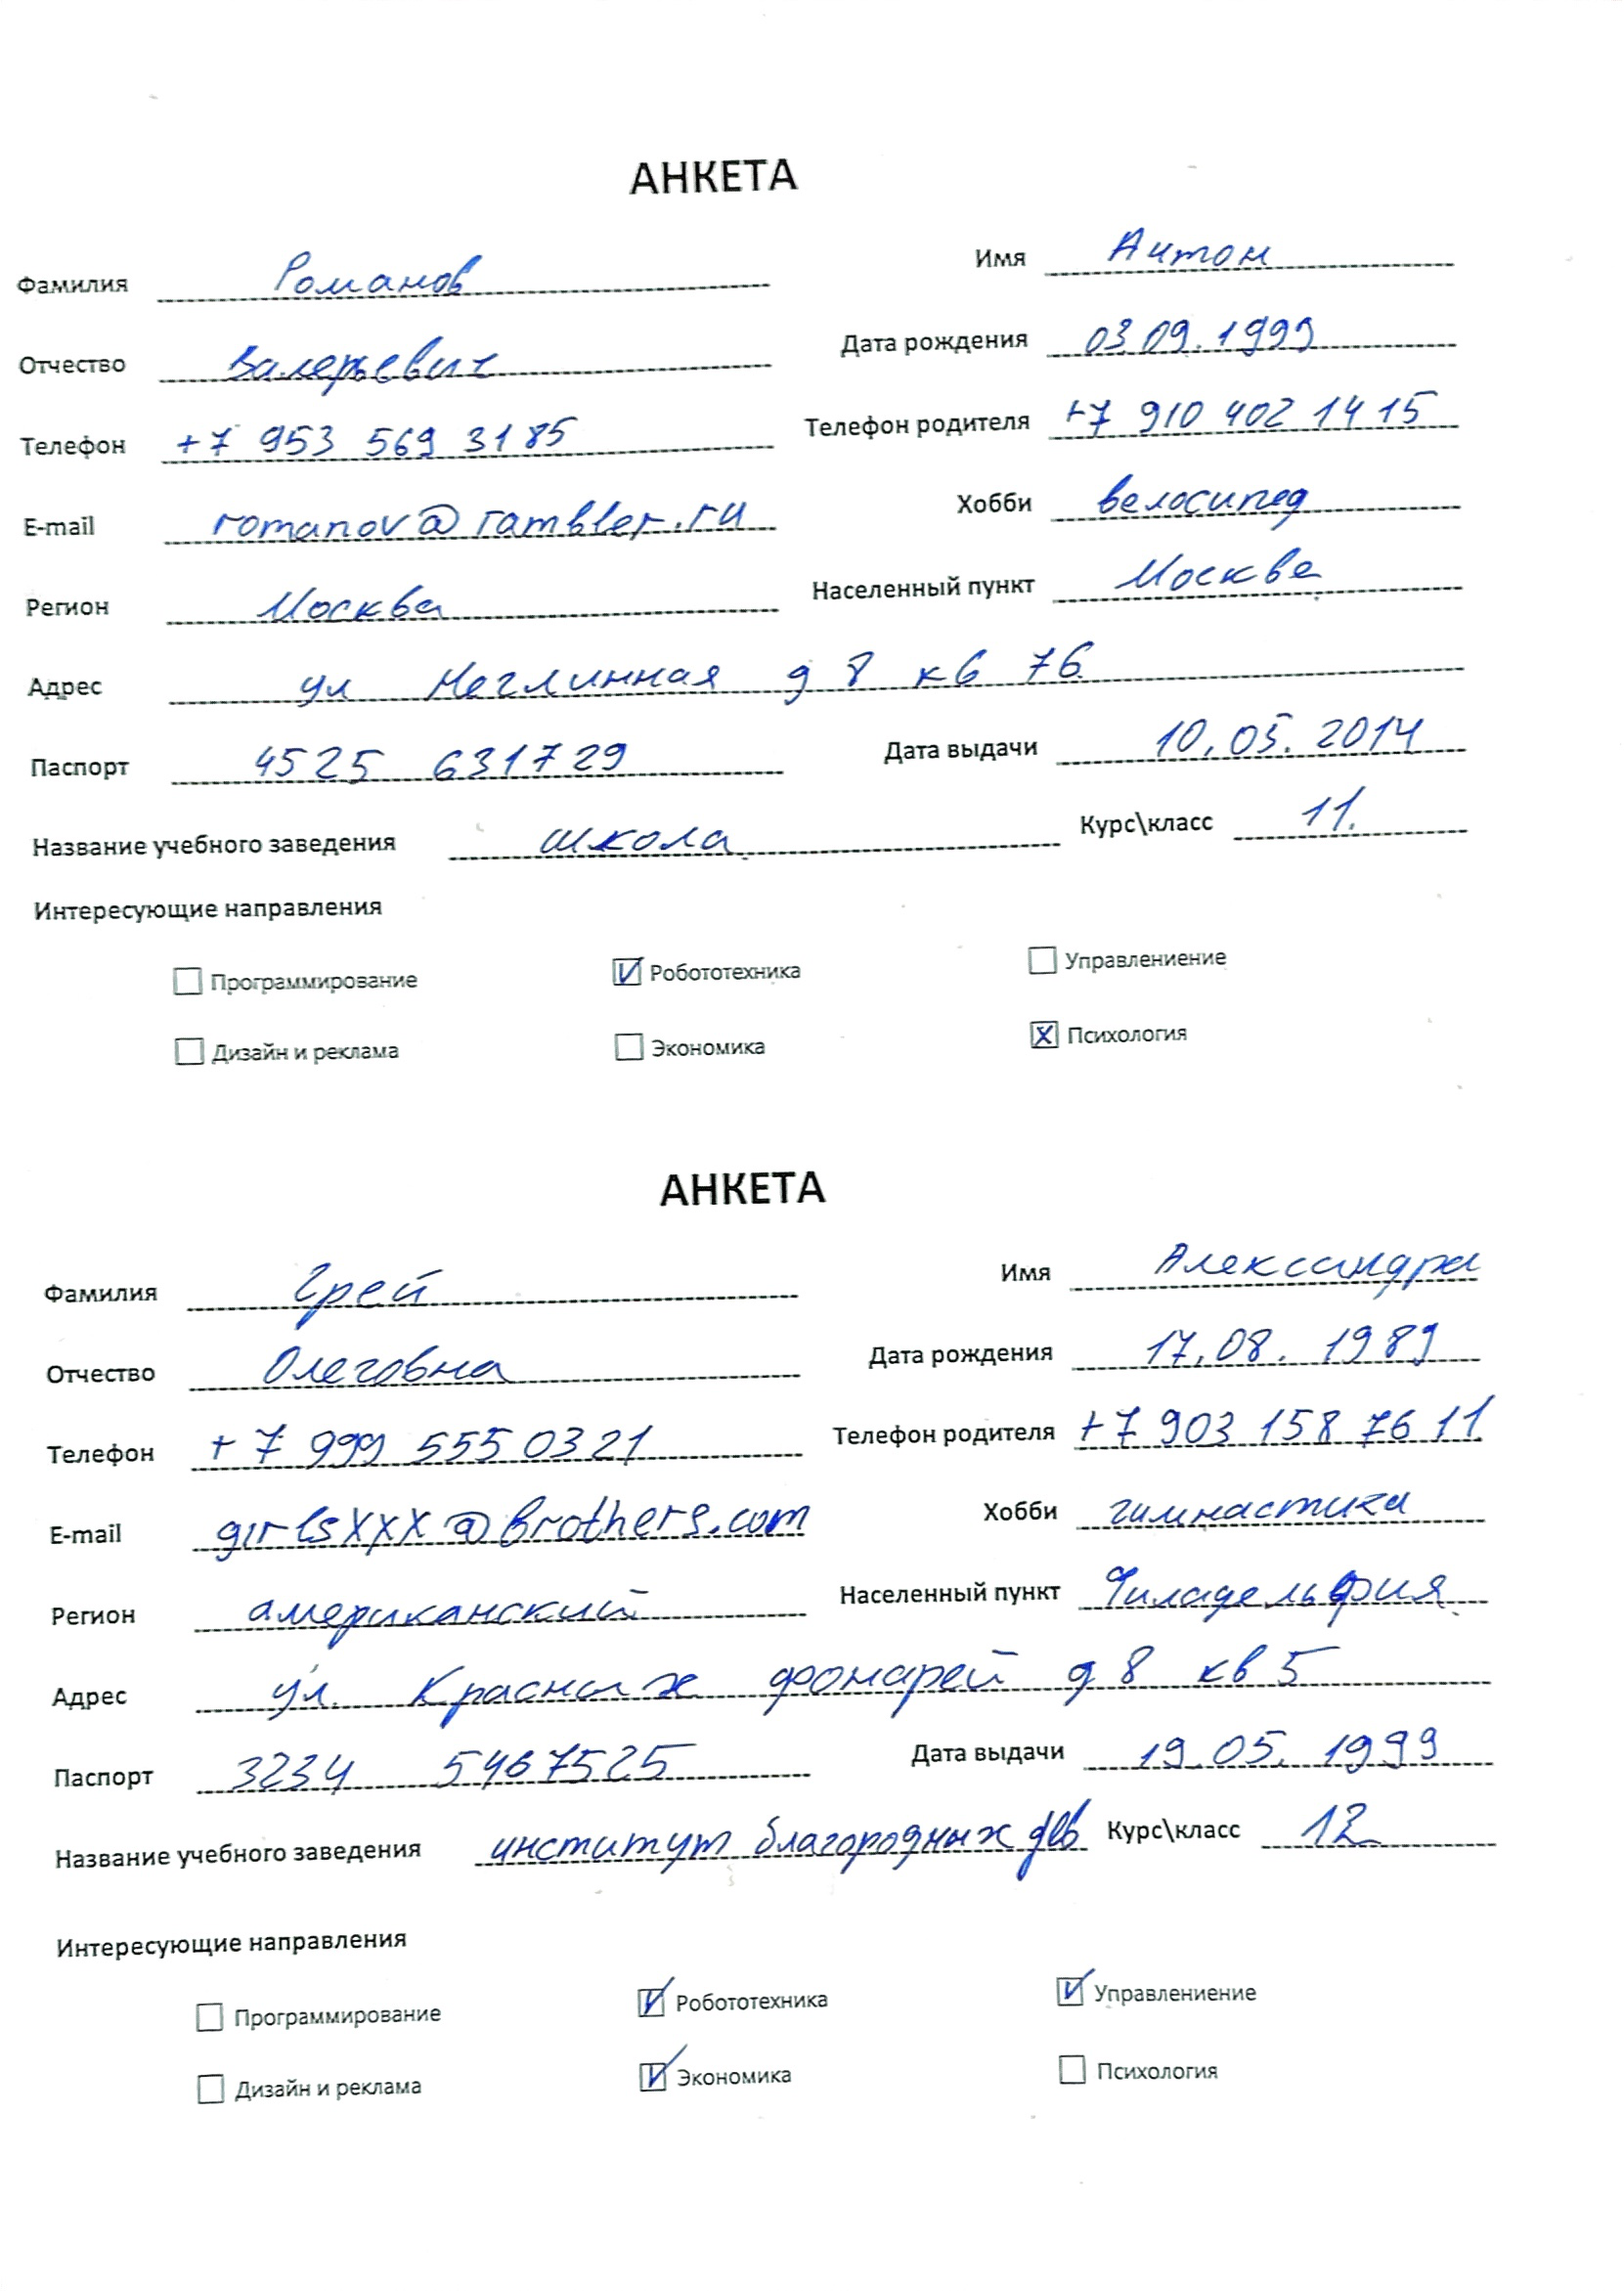 АНКЕТА
Фамилия Романов Имя Антон
Отчество Валерьевич Дата рождения 03.09.1999
Телефон +7 953 569 3185 Телефон родителя +7 910 402 14 15
E-mail romanov@rambler.ru Хобби велосипед
Регион Москва Населенный пункт Москва
Адрес ул Неглинная д 8 кв 76
Паспорт 4525 631729 Дата выдачи 10.05.2014
Название учебного заведения школа Курс\класс 11.
Интересующие направления
Программирование Робототехника Управлениение
Дизайн и реклама Экономика Психология
АНКЕТА
Фамилия Грей Имя Александра
Отчество Олеговна Дата рождения 17.08. 1989
Телефон +7 999 555 0321 Телефон родителя +7 903 158 76 11
E-mail girlsXXX@brothers.com Хобби гимнастика
Регион американский Населенный пункт Филадельфия
Адрес ул. Красных фонарей д 8 кв 5
Паспорт 3234 5467525 Дата выдачи 19.05. 1999
Название учебного заведения институт благородных дев Курс\класс 12
Интересующие направления
Программирование Робототехника Управлениение
Дизайн и реклама Экономика Психология